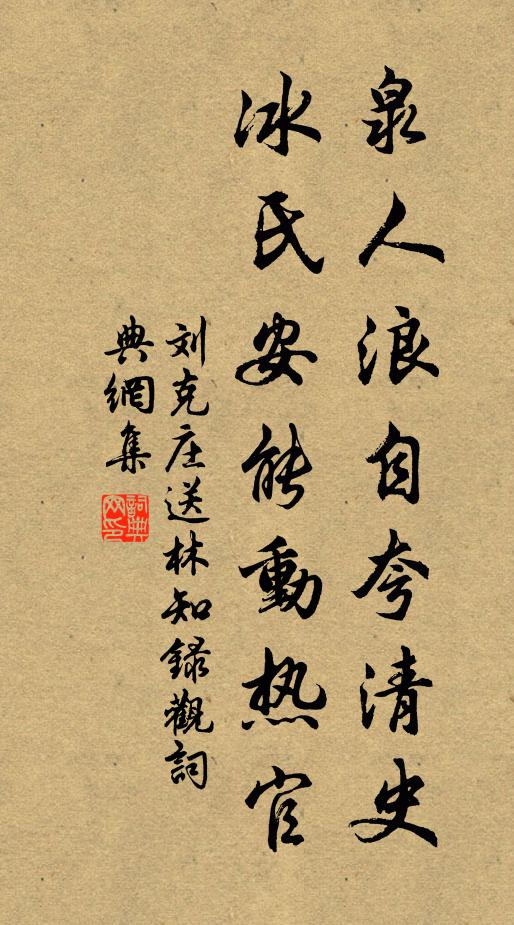 泉人浪自夸清史
冰氏安能動热官
刘克庄送林知録觀詞
典網集
詞典網印